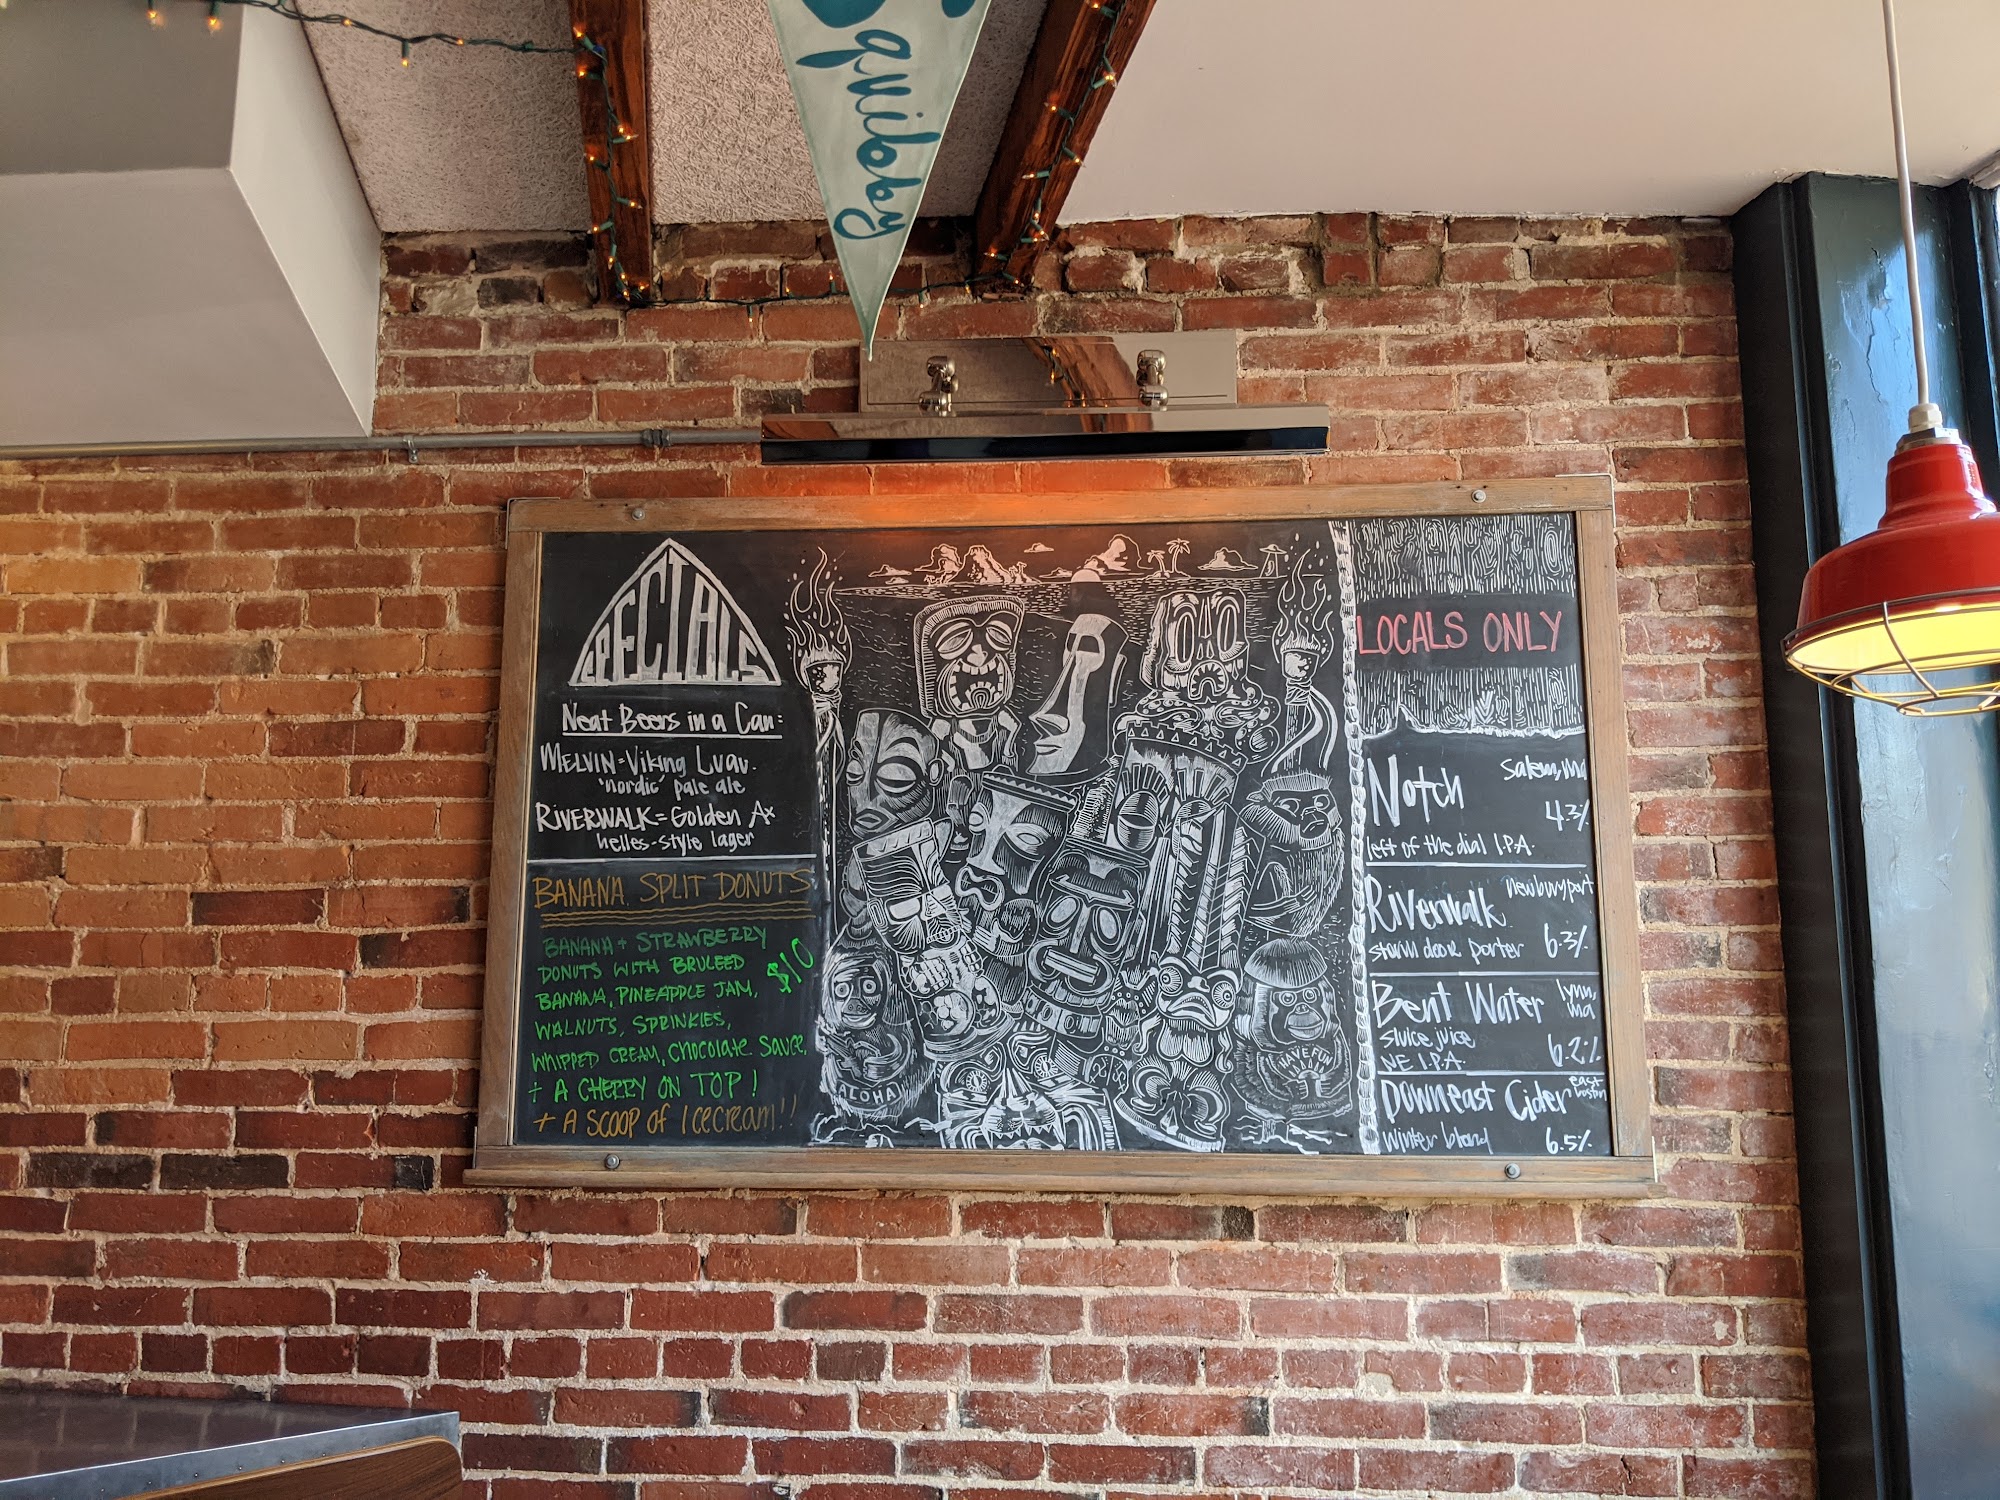 Squibby
SPECIALS
Neat Beers in a Can:
MELVIN = Viking Luau.
'nordic' pale ale
RIVERWALK = Golden Ax
helles-style lager
BANANA SPLIT DONUTS
BANANA + STRAWBERRY
DONUTS WITH BRULEED
BANANA, PINEAPPLE JAM,
WALNUTS, SPRINKLES,
WHIPPED CREAM, CHOCOLATE SAUCE,
+ A CHERRY ON TOP!
+ A SCOOP OF ICECREAM!!
$10
ALOHA
HAVE FUN
LOCALS ONLY
Notch
Salem, Ma
4.3%
left of the dial I.P.A.
Riverwalk
newburyport
storm door porter
6.3%
Bent Water
lynn,
ma
sluice juice
NE I.P.A.
6.2%
Downeast Cider
east
boston
winter blend
6.5%